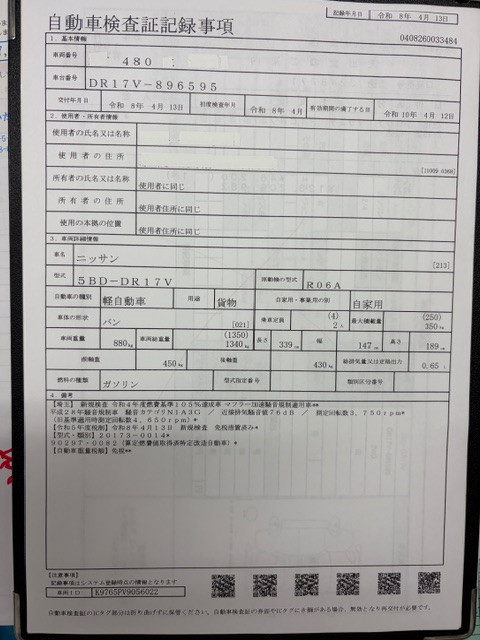 自動車検査証記録事項
記録年月日 令和 8年 4月 13日
0408260033484
1. 基本情報
車両番号 480
車台番号 DR17V-896595
交付年月日 令和 8年 4月 13日 初度検査年月 令和 8年 4月 有効期間の満了する日 令和 10年 4月 12日
2. 使用者・所有者情報
使用者の氏名又は名称
使用者の住所
[11009 0366]
所有者の氏名又は名称 使用者に同じ
所有者の住所 使用者住所に同じ
使用の本拠の位置 使用者住所に同じ
3. 車両詳細情報
車名 ニッサン [213]
型式 5BD-DR17V 原動機の型式 R06A
自動車の種別 軽自動車 用途 貨物 自家用・事業用の別 自家用
車体の形状 バン [021] 乗車定員 (4) 2人 最大積載量 (250) 350kg
車両重量 880kg 車両総重量 (1350) 1340kg 長さ 339cm 幅 147cm 高さ 189cm
前軸重 450kg 後軸重 430kg 総排気量又は定格出力 0.65L
燃料の種類 ガソリン 型式指定番号 類別区分番号
4. 備考
【埼玉】 新規検査 令和4年度燃費基準105%達成車 マフラー加速騒音規制適用車**
平成28年騒音規制車 騒音カテゴリN1A3G / 近接排気騒音値76dB / 測定回転数3,750rpm*
(旧基準適用時測定回転数4,650rpm)**
【令和5年度税制】令和8年4月13日 新規検査 免税措置済み*
【型式・類別】20173-0014*
00297・0082(算定燃費値取得済特定改造自動車)*
【自動車重量税額】免税**
【注意事項】
記録事項はシステム登録時点の情報となります
車両ID K9765PV9056022
自動車検査証のICタグ部分は折り曲げずに保管ください。自動車検査証の券面やICタグにき損がある場合、無効となり再交付が必要です。